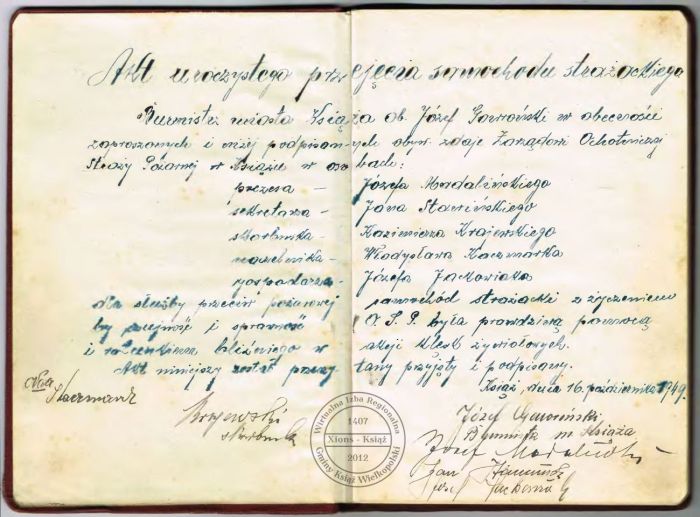 Akt uroczystego przejęcia samochodu strażackiego
Burmistrz miasta Książa ob. Józef Gawroński w obecności
zaproszonych i niżej podpisanych obyw. zdaje Zarządowi Ochotniczej
Straży Pożarnej w Książu w osobach:
prezesa – Józefa Madalińskiego
sekretarza – Jana
skarbnika – Kazimierza Krajewskiego
naczelnika – Władysława Kaczmarka
gospodarza – Józefa Jackowiaka
dla służby przeciw pożarowej samochód strażacki z życzeniem
by sprawność i O.S.P. była prawdziwą pomocą
i bliźniego w akcji klęsk żywiołowych.
Akt niniejszy został przeczytany przyjęty i podpisany.
Książ, dnia 16. października 1949.
Kaczmarek
Krajewski
skarbnik
Józef Gawroński
Burmistrz m. Książa
Józef Madaliński
Jan
Józef
Wirtualna Izba Regionalna
1407
Xions - Książ
2012
Gminy Książ Wielkopolski